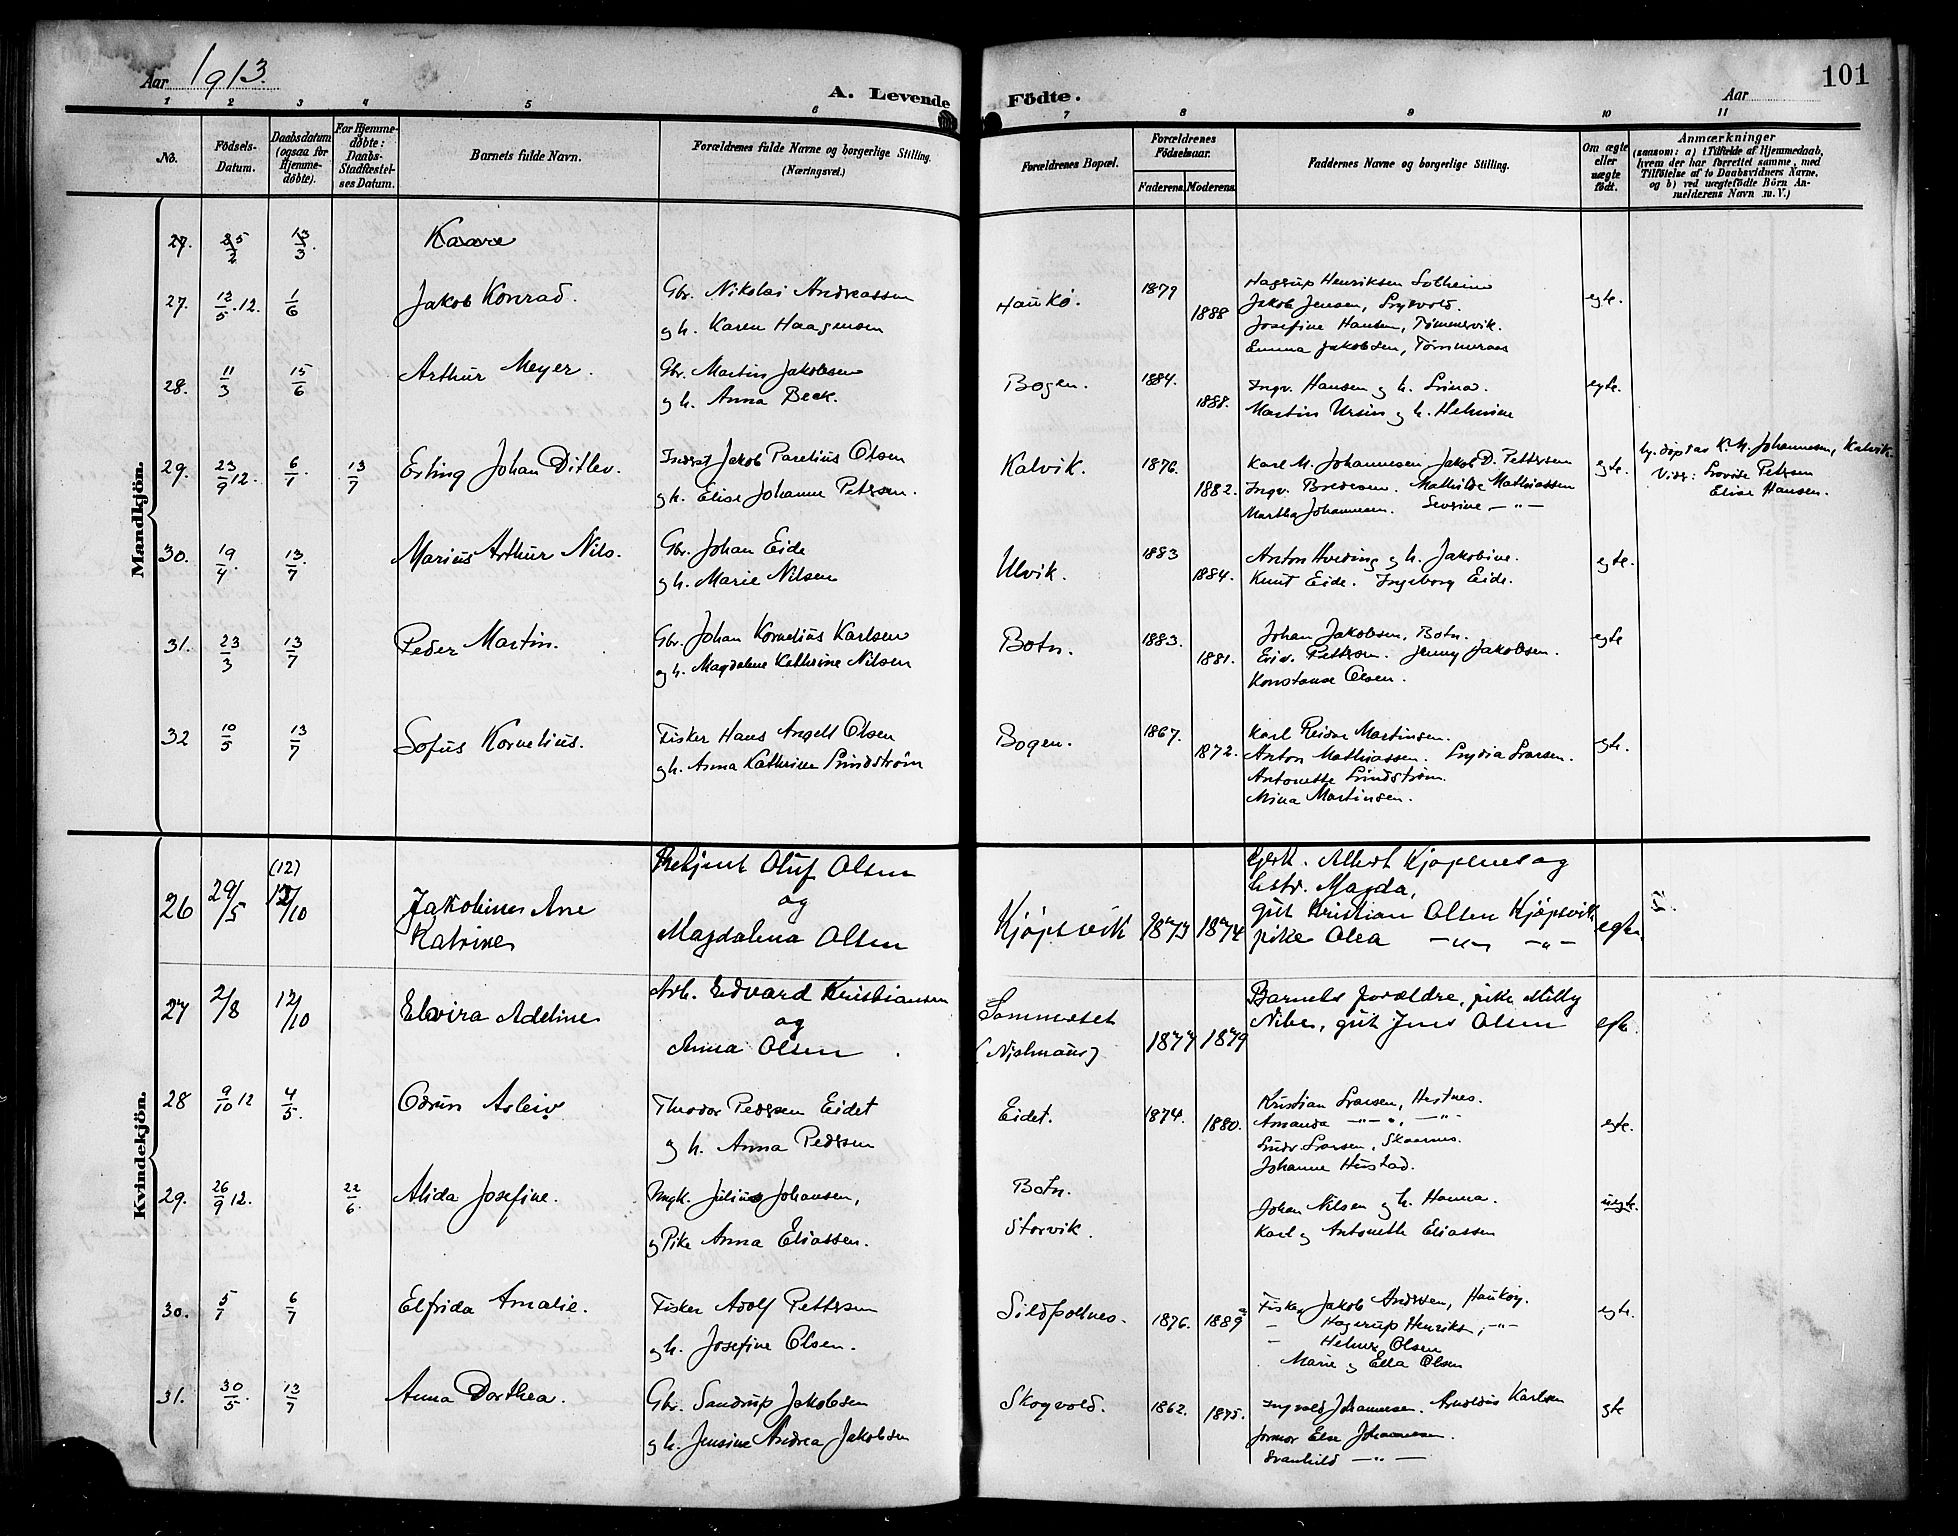 Aar 1913.
A. Levende Födte.
Aar
101
1 2 3 4 5 6 7 8 9 10 11
No.
Födsels-Datum.
Daabsdatum (ogsaa for Hjemme-döbte).
For Hjemme-döbte: Daabs-Stadfæstel-ses Datum.
Barnets fulde Navn.
Forældrenes fulde Navne og borgerlige Stilling. (Næringsvei.)
Forældrenes Bopæl.
Forældrenes Födselsaar.
Faderens. Moderens.
Faddernes Navne og borgerlige Stilling.
Om ægte eller uægte födt.
Anmærkninger
(saasom: a) i Tilfælde af Hjemmedaab, hvem der har forrettet samme, med Tilföielse af to Daabsvidners Navne, og b) ved uægtefödte Börn Anmelderens Navn m. V.)
Mandkjön.
27. 25/2 13/3. Kaare
27. 12/5.12. 1/6 Jakob Konrad. Gbr. Nikolai Andreassen
og h. Karen Haagensen
Haukö. 1879 1888 Hagerup Henriksen Solheim
Jakob Jensen,
Josefine Hansen, Tømmervik.
Emma Jakobsen, Tømmeraas
egte.
28. 11/3 15/6 Arthur Meyer. Gbr. Martin Jakobsen
og h. Anna Beck.
Bogen. 1884. 1888. Ingv. Hansen og h. Lina.
Martin Ursin og h. Helmine
egte.
29. 23/9 12. 6/7. 13/7 Erling Johan Ditlev. Inderst Jakob Parelius Olsen
og h. Elise Johanne Petersen.
Kalvik. 1876. 1882. Karl M. Johannesen Jakob D. Pettersen
Ingv. Bredesen. Mathilde Mathiassen
Martha Johannesen. Severine — " —
egte. K. M. Johannesen, Kalvik.
Petersen
Elise Hansen.
30. 19/4 13/7 Marius Arthur Nils. Gbr. Johan Eide
og h. Marie Nilsen
Ulvik. 1883 1884. Anton Hveding og h. Jakobine.
Knut Eide. Ingeborg Eide.
egte.
31. 23/3 13/7 Peder Martin. Gbr. Johan Kornelius Karlsen
og h. Magdalene Kathrine Nilsen
Botn. 1883. 1881. Johan Jakobsen, Botn.
Pettersen. Jenny Jakobsen.
Konstanse Olsen.
egte
32 10/5 13/7 Sofus Kornelius. Fisker Hans Angell Olsen
og h. Anna Kathrine Lindström
Bogen. 1867. 1872. Karl Reidar Martinsen.
Anton Mathiassen. Lydia Larsen.
Antonette Lindström.
Mina Martinsen.
egte.
Kvindekjön.
26 29/5 (12) 12/10 Jakobine Ane
Katrine
Oluf Olsen
og
Magdalena Olsen
Kjöpsvik 1873 1874 Albert Kjöpsnes og
hstr. Magda,
gut Kristian Olsen Kjöpsvik
pike Olea — " — — " —
egte.
27 2/8 12/10 Elvira Adeline Arb. Edvard Kristiansen
og
Anna Olsen.
Sommerset
1877 1879 Barnets forældre, pike Milly
gut Jens Olsen
egte
28 9/10 12 4/5. Odrun Asleiv Theodor Pedersen Eidet
og h. Anna Pedersen
Eidet. 1874. 1880. Kristian Larsen, Hestnes.
Amanda — " — " —
Larsen, Skaarnes.
Johanne Hustad.
egte.
29. 26/9 12. 22/6. Alida Josefine. Ungk. Julius Johansen,
og Pike Anna Eliassen.
Botn.
Storvik.
Johan Nilsen og h. Hanna.
Karl og Antonette Eliassen
uegte.
30. 5/7 6/7 Elfrida Amalie. Fisker Adolf Pettersen
og h. Josefine Olsen.
Sildpollnes. 1876. 1889 Fisker Jakob Andersen, Hauköy.
— Hagerup Henriks., — " —
— Helmer Olsen
Marie og Ella Olsen
egte.
31. 30/5 13/7 Anna Dorthea. Gbr. Sandrup Jakobsen
og h. Jensine Andrea Jakobsen
Skogvold. 1862. 1875. Ingvald Johannesen. Arnoldus Karlsen
formor Else Johannesen.
Svanhild — " —
egte